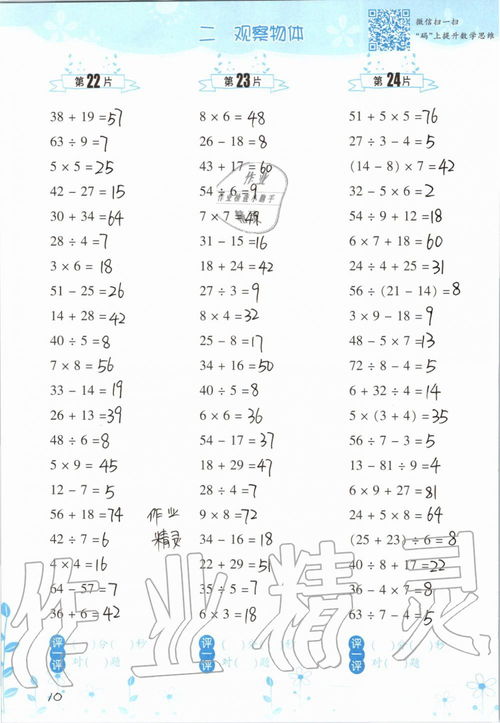 二 观察物体
微信扫一扫
"码"上提升数学思维
第22片
38 + 19 = 57
63 ÷ 9 = 7
5 × 5 = 25
42 - 27 = 15
30 + 34 = 64
28 ÷ 4 = 7
3 × 6 = 18
51 - 25 = 26
14 + 28 = 42
40 ÷ 5 = 8
7 × 8 = 56
33 - 14 = 19
26 + 13 = 39
48 ÷ 6 = 8
5 × 9 = 45
12 - 7 = 5
56 + 18 = 74
42 ÷ 7 = 6
4 × 4 = 16
64 - 57 = 7
36 + 6 = 42
评一评
( )分( )秒
对( )题
第23片
8 × 6 = 48
26 - 18 = 8
43 + 17 = 60
54 ÷ 6 = 9
7 × 7 = 49
31 - 15 = 16
18 + 24 = 42
27 ÷ 3 = 9
8 × 4 = 32
25 - 8 = 17
34 + 16 = 50
40 ÷ 5 = 8
6 × 6 = 36
54 - 17 = 37
18 + 29 = 47
28 ÷ 4 = 7
9 × 8 = 72
34 - 16 = 18
22 + 29 = 51
35 ÷ 5 = 7
6 × 3 = 18
评一评
( )分( )秒
对( )题
第24片
51 + 5 × 5 = 76
27 ÷ 3 - 4 = 5
(14 - 8) × 7 = 42
32 - 5 × 6 = 2
54 ÷ 9 + 12 = 18
6 × 7 + 18 = 60
24 ÷ 4 + 25 = 31
56 ÷ (21 - 14) = 8
3 × 9 - 18 = 9
48 - 5 × 7 = 13
72 ÷ 8 - 4 = 5
6 + 32 ÷ 4 = 14
5 × (3 + 4) = 35
56 ÷ 7 - 3 = 5
13 - 81 ÷ 9 = 4
6 × 9 + 27 = 81
24 + 5 × 8 = 64
(25 + 23) ÷ 6 = 8
40 ÷ 8 + 17 = 22
36 - 4 × 7 = 8
63 ÷ 7 - 4 = 5
评一评
( )分( )秒
对( )题
作业
精灵
作业精灵
10